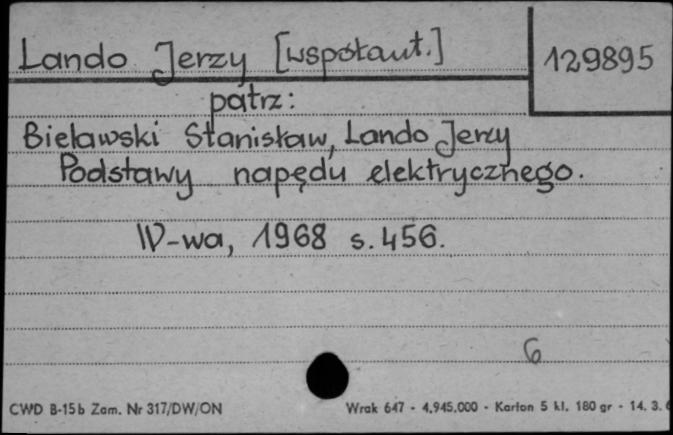 Lando Jerzy [współaut.] 129895
patrz:
Bielawski Stanisław, Lando Jerzy
Podstawy napędu elektrycznego.
W-wa, 1968 s. 456.
6
CWD B-15b Zam. Nr 317/DW/ON Wrak 647 - 4.945.000 - Karton 5 kl. 180 gr - 14. 3.